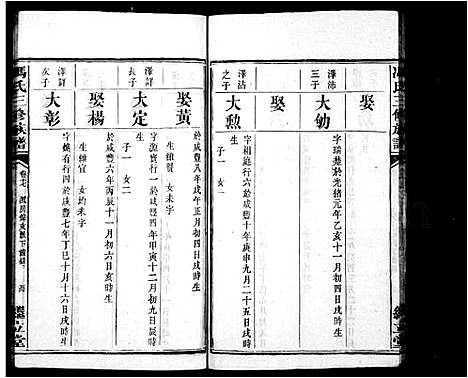 馮氏三修族譜
澤沛
三子
大勛
字瑞楚於光緒元年乙亥十一月初四日戌時生
娶
澤沾
之子
大勲
字相庭行六於咸豐十年庚申九月二十五日戌時生
子一 女一
娶黃
於咸豐八年戊午正月初三日戌時生
生維賢 女未字
澤訂
長子
大定
字源寶行一於咸豐四年甲寅十二月初三日戌時生
子一 女二
娶楊
於咸豐六年丙辰十一月初六日亥時生
生維宜 女均未字
澤訂
次子
大彰
字煥有行二於咸豐七年丁巳十月十六日戌時生
馮氏三修族譜
繼立堂